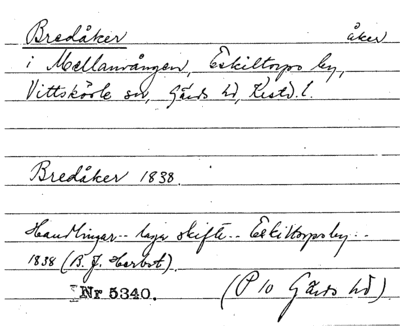 Bredåker åker
i Mellanvången, Eskiltorps by,
Vittskövle sn, Gärds hd, Kristd. l.
Bredåker 1838.
Handlingar.. laga skifte.. Eskiltorps by..
1838 (B. J. Herbst).
Nr 5340. (P 10 Gärds hd)